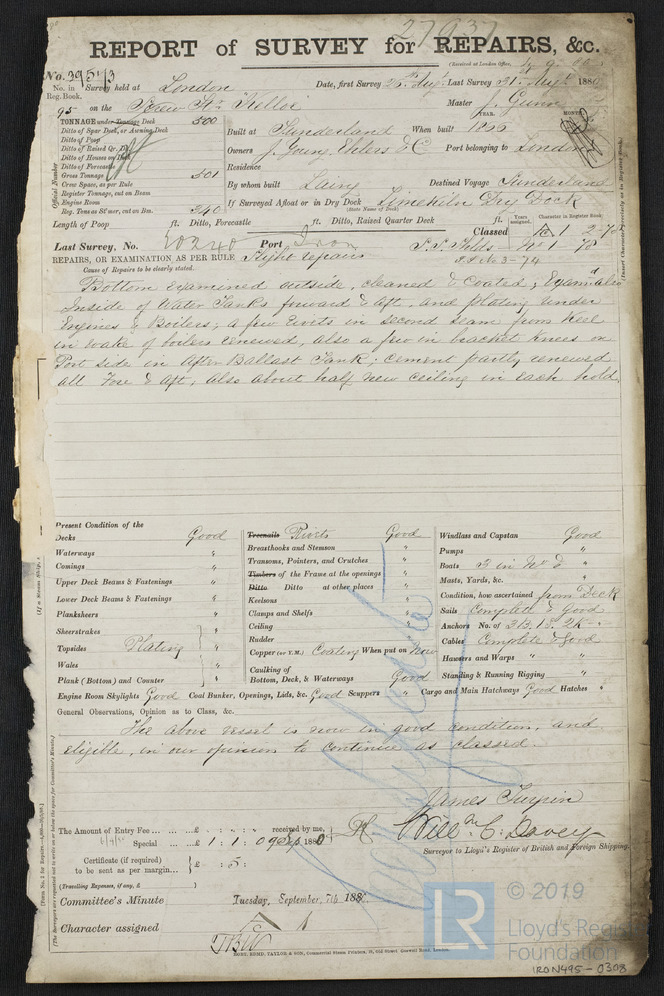 27937
REPORT of SURVEY for REPAIRS, &c.
(Received at London Office,
No. 39513 Survey held at London Date, first Survey 26th Augt. Last Survey 31st Augt. 1880
No. in Reg. Book.
95 on the Screw Str. Keller Master J. Gunn
TONNAGE under Tonnage Deck 500
Ditto of Spar Deck, or Awning Deck
Ditto of Poop
Ditto of Raised Qr. Dk.
Ditto of Houses on Deck
Ditto of Forecastle
Gross Tonnage 501
Crew Space, as per Rule
Register Tonnage, cut on Beam
Engine Room
Reg. Tons as St'mer, cut on Bm. 340
Official Number
YEAR. MONTH.
Built at Sunderland When built
Owners J. Young, Ehlers & Co Port belonging to London
Residence
By whom built Laing Destined Voyage Sunderland
If Surveyed Afloat or in Dry Dock Limekiln Dry Dock
(State Name of Dock)
Length of Poop ft. Ditto, Forecastle ft. Ditto, Raised Quarter Deck ft.
Years assigned. Character in Register Book
Classed
Last Survey, No. 20240 Port Iron
REPAIRS, OR EXAMINATION AS PER RULE Slight repairs
Cause of Repairs to be clearly stated.
Bottom examined outside, cleaned & coated; Examd. also
Inside of Water Tanks forward & aft, and plating under
Engines & Boilers; a few rivets in second seam from Keel
in wake of boilers renewed, also a few in bracket knees on
Port side in After Ballast Tank; cement partly renewed
all Fore & aft, also about half new ceiling in each hold.
Present Condition of the
Decks Good
Waterways "
Comings "
Upper Deck Beams & Fastenings "
Lower Deck Beams & Fastenings "
Planksheers "
Sheerstrakes "
Topsides Plating "
Wales "
Plank (Bottom) and Counter "
Treenails Rivets Good
Breasthooks and Stemson "
Transoms, Pointers, and Crutches "
Timbers of the Frame at the openings "
Ditto Ditto at other places "
Keelsons "
Clamps and Shelfs "
Ceiling "
Rudder "
Copper (or Y.M.) Coating When put on Now
Caulking of
Bottom, Deck, & Waterways Good
Windlass and Capstan Good
Pumps "
Boats 3 in No. "
Masts, Yards, &c. "
Condition, how ascertained from Deck
Sails Complete & Good
Anchors No. of 3B. 1S. 2K.
Cables Complete & Good
Hawsers and Warps " "
Standing & Running Rigging "
Engine Room Skylights Good Coal Bunker, Openings, Lids, &c. Good Scuppers " Cargo and Main Hatchways Good Hatches "
General Observations, Opinion as to Class, &c.
The above vessel is now in good condition, and
eligible, in our opinion to continue as classed.
James Turpin
Willm. C. Davey
Surveyor to Lloyd's Register of British and Foreign Shipping.
The Amount of Entry Fee ... £ : : received by me,
Special ... £ 1 : 1 : 0 9 Sep 1880
Certificate (if required) to be sent as per margin... £ : 5 :
(Travelling Expenses, if any, £ )
Committee's Minute Tuesday, September, 7th, 188
Character assigned
© 2019
LR
Lloyd's Register
Foundation
IRON495-0308